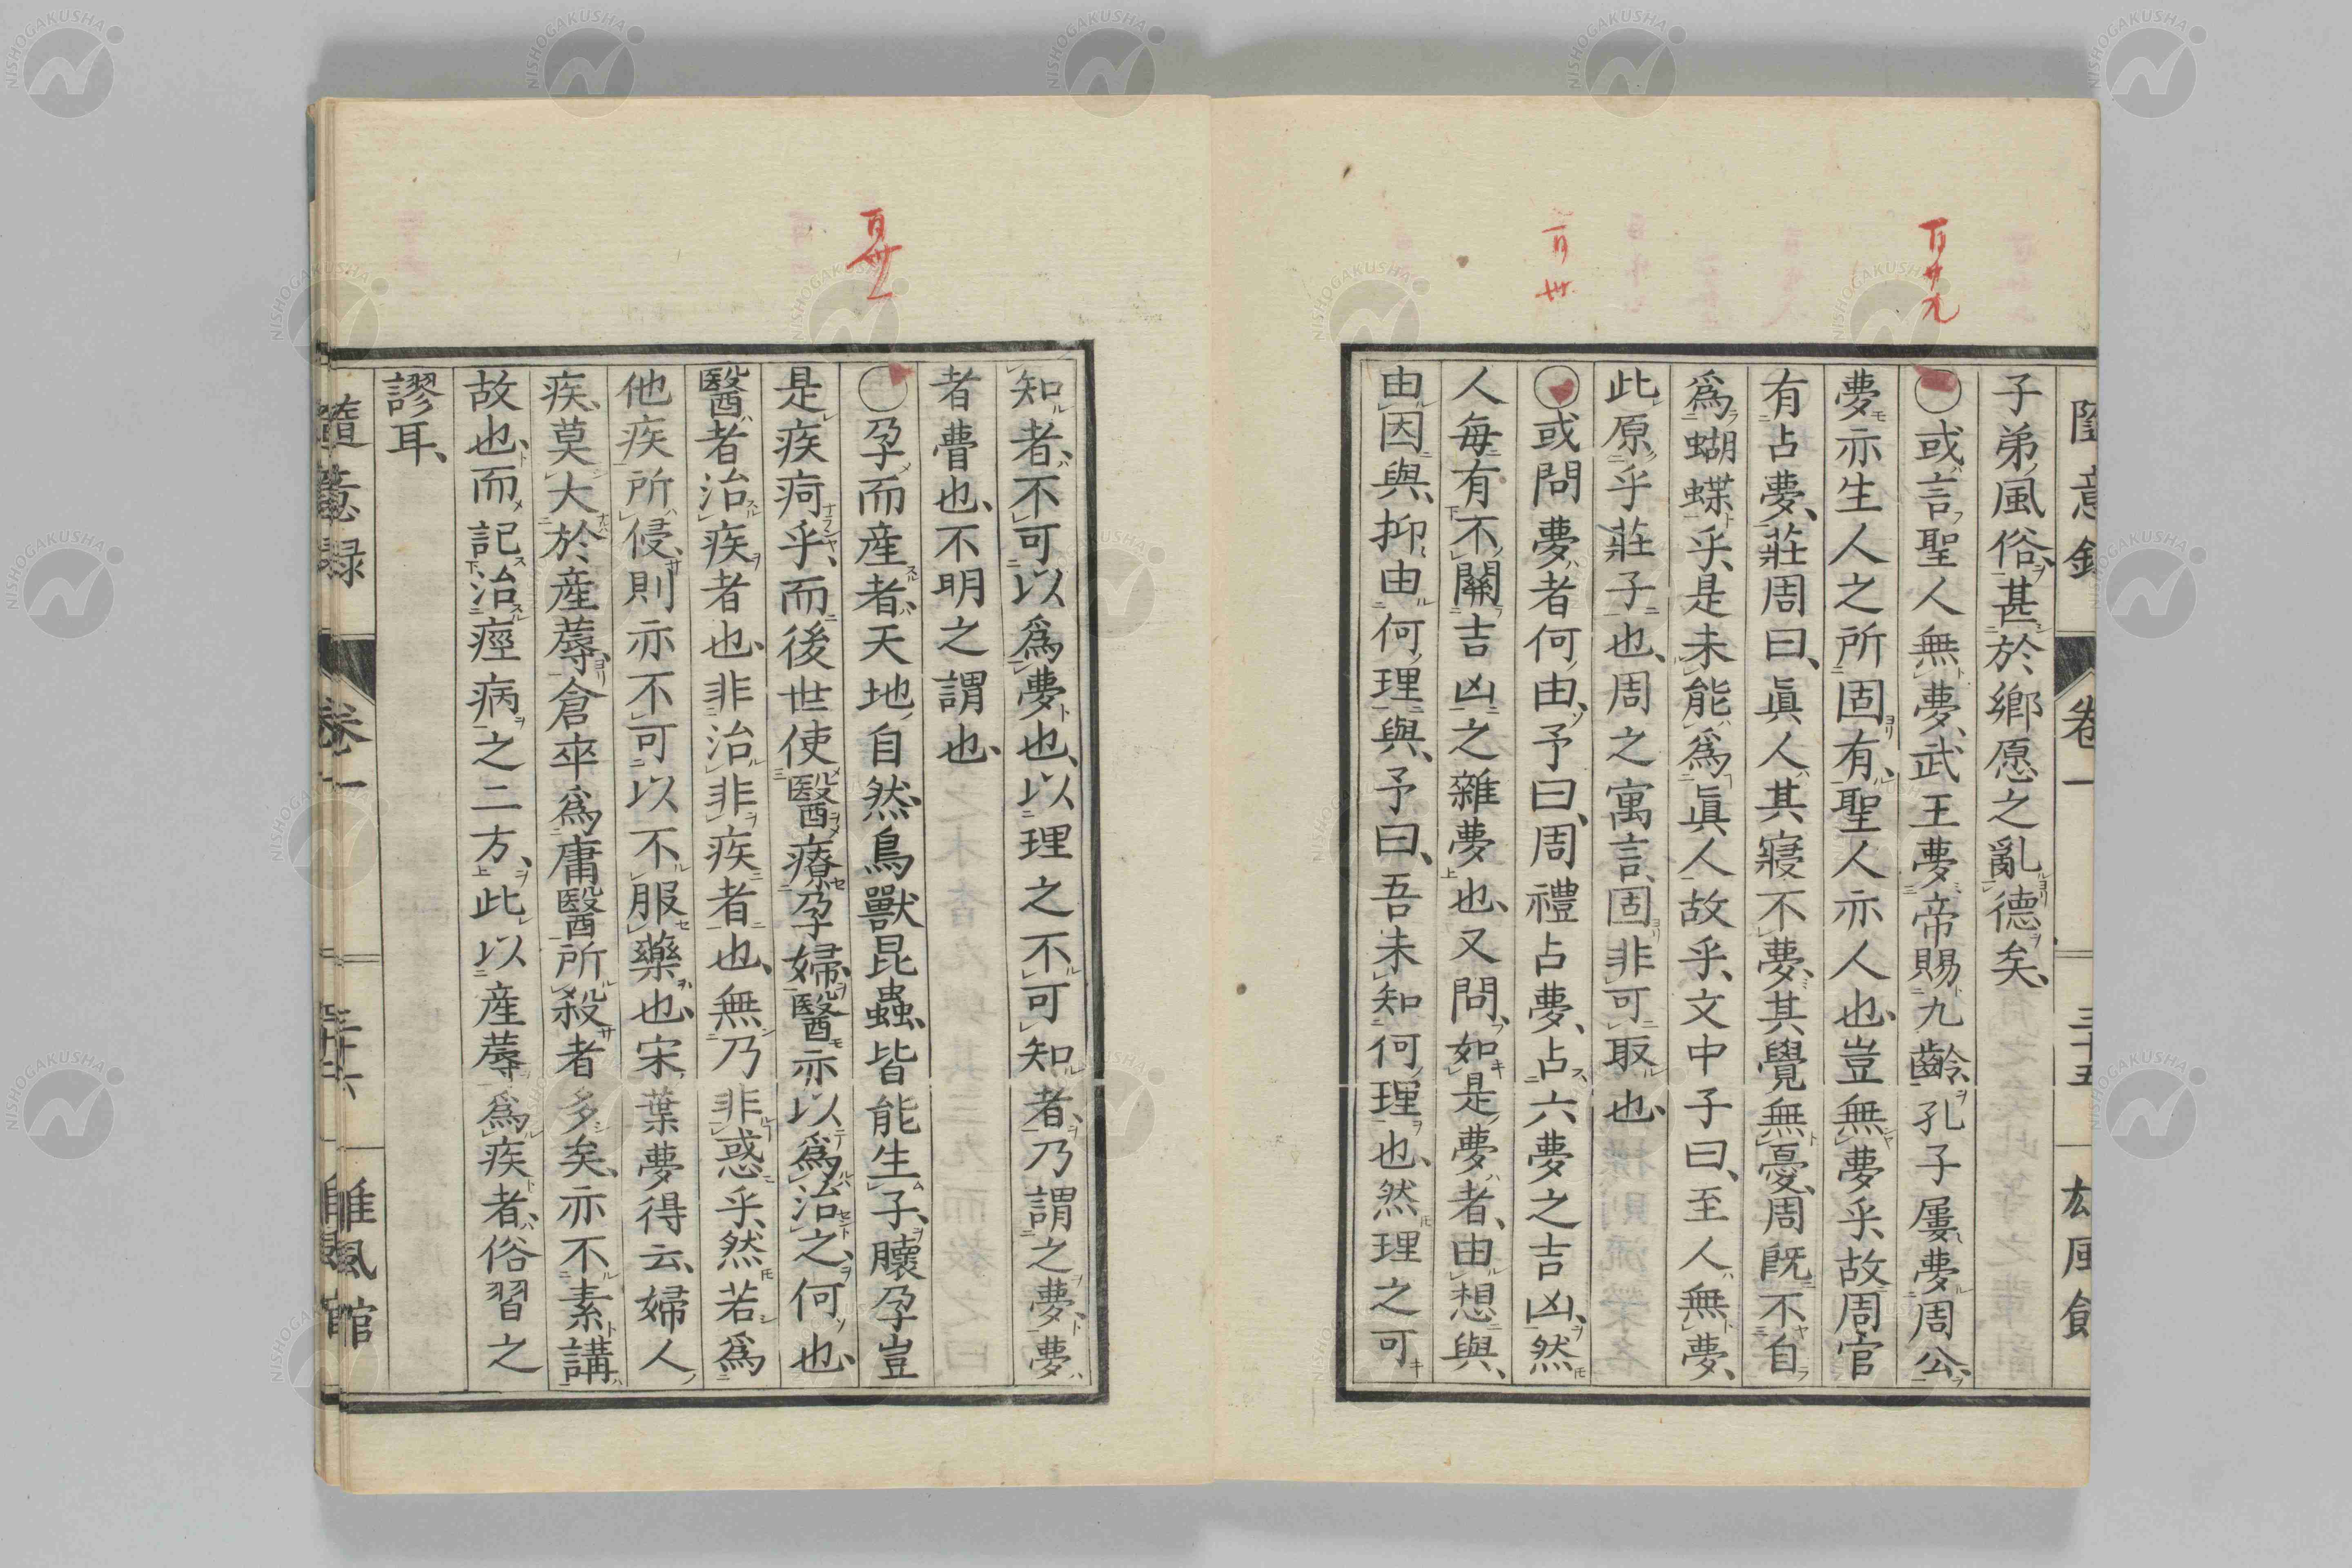 百廿九
百卅
子弟風俗、甚於鄉愿之亂德矣、
○或言聖人無夢、武王夢帝賜九齡、孔子屢夢周公、
夢亦生人之所固有、聖人亦人也、豈無夢乎、故周官
有占夢、莊周曰、眞人其寢不夢、其覺無憂、周旣不自
爲蝴蝶乎、是未能爲眞人故乎、文中子曰、至人無夢、
此原乎莊子也、周之寓言、固非可取也、
○或問夢者何由、予曰、周禮占夢、占六夢之吉凶、然
人每有不關吉凶之雜夢也、又問、如是夢者、由想與、
由因與、抑由何理與、予曰、吾未知何理也、然理之可
卷一
三十五
百卅一
知者、不可以爲夢也、以理之不可知者、乃謂之夢、夢
者瞢也、不明之謂也、
○孕而産者、天地自然、鳥獸昆蟲、皆能生子、膁孕豈
是疾疴乎、而後世使醫療孕婦、醫亦以爲治之、何也、
醫者治疾者也、非治非疾者也、無乃非惑乎、然若爲
他疾所侵、則亦不可以不服藥也、宋葉夢得云、婦人
疾、莫大於産蓐、倉卒爲庸醫所殺者多矣、亦不素講
故也、而記治痙病之二方、此以産蓐爲疾者、俗習之
謬耳、
隨意録
卷一
三十六
雄風館